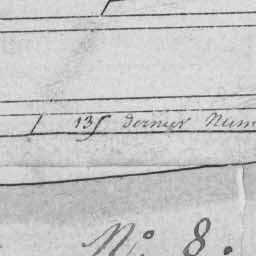 135 dernier Num
N.º 8.